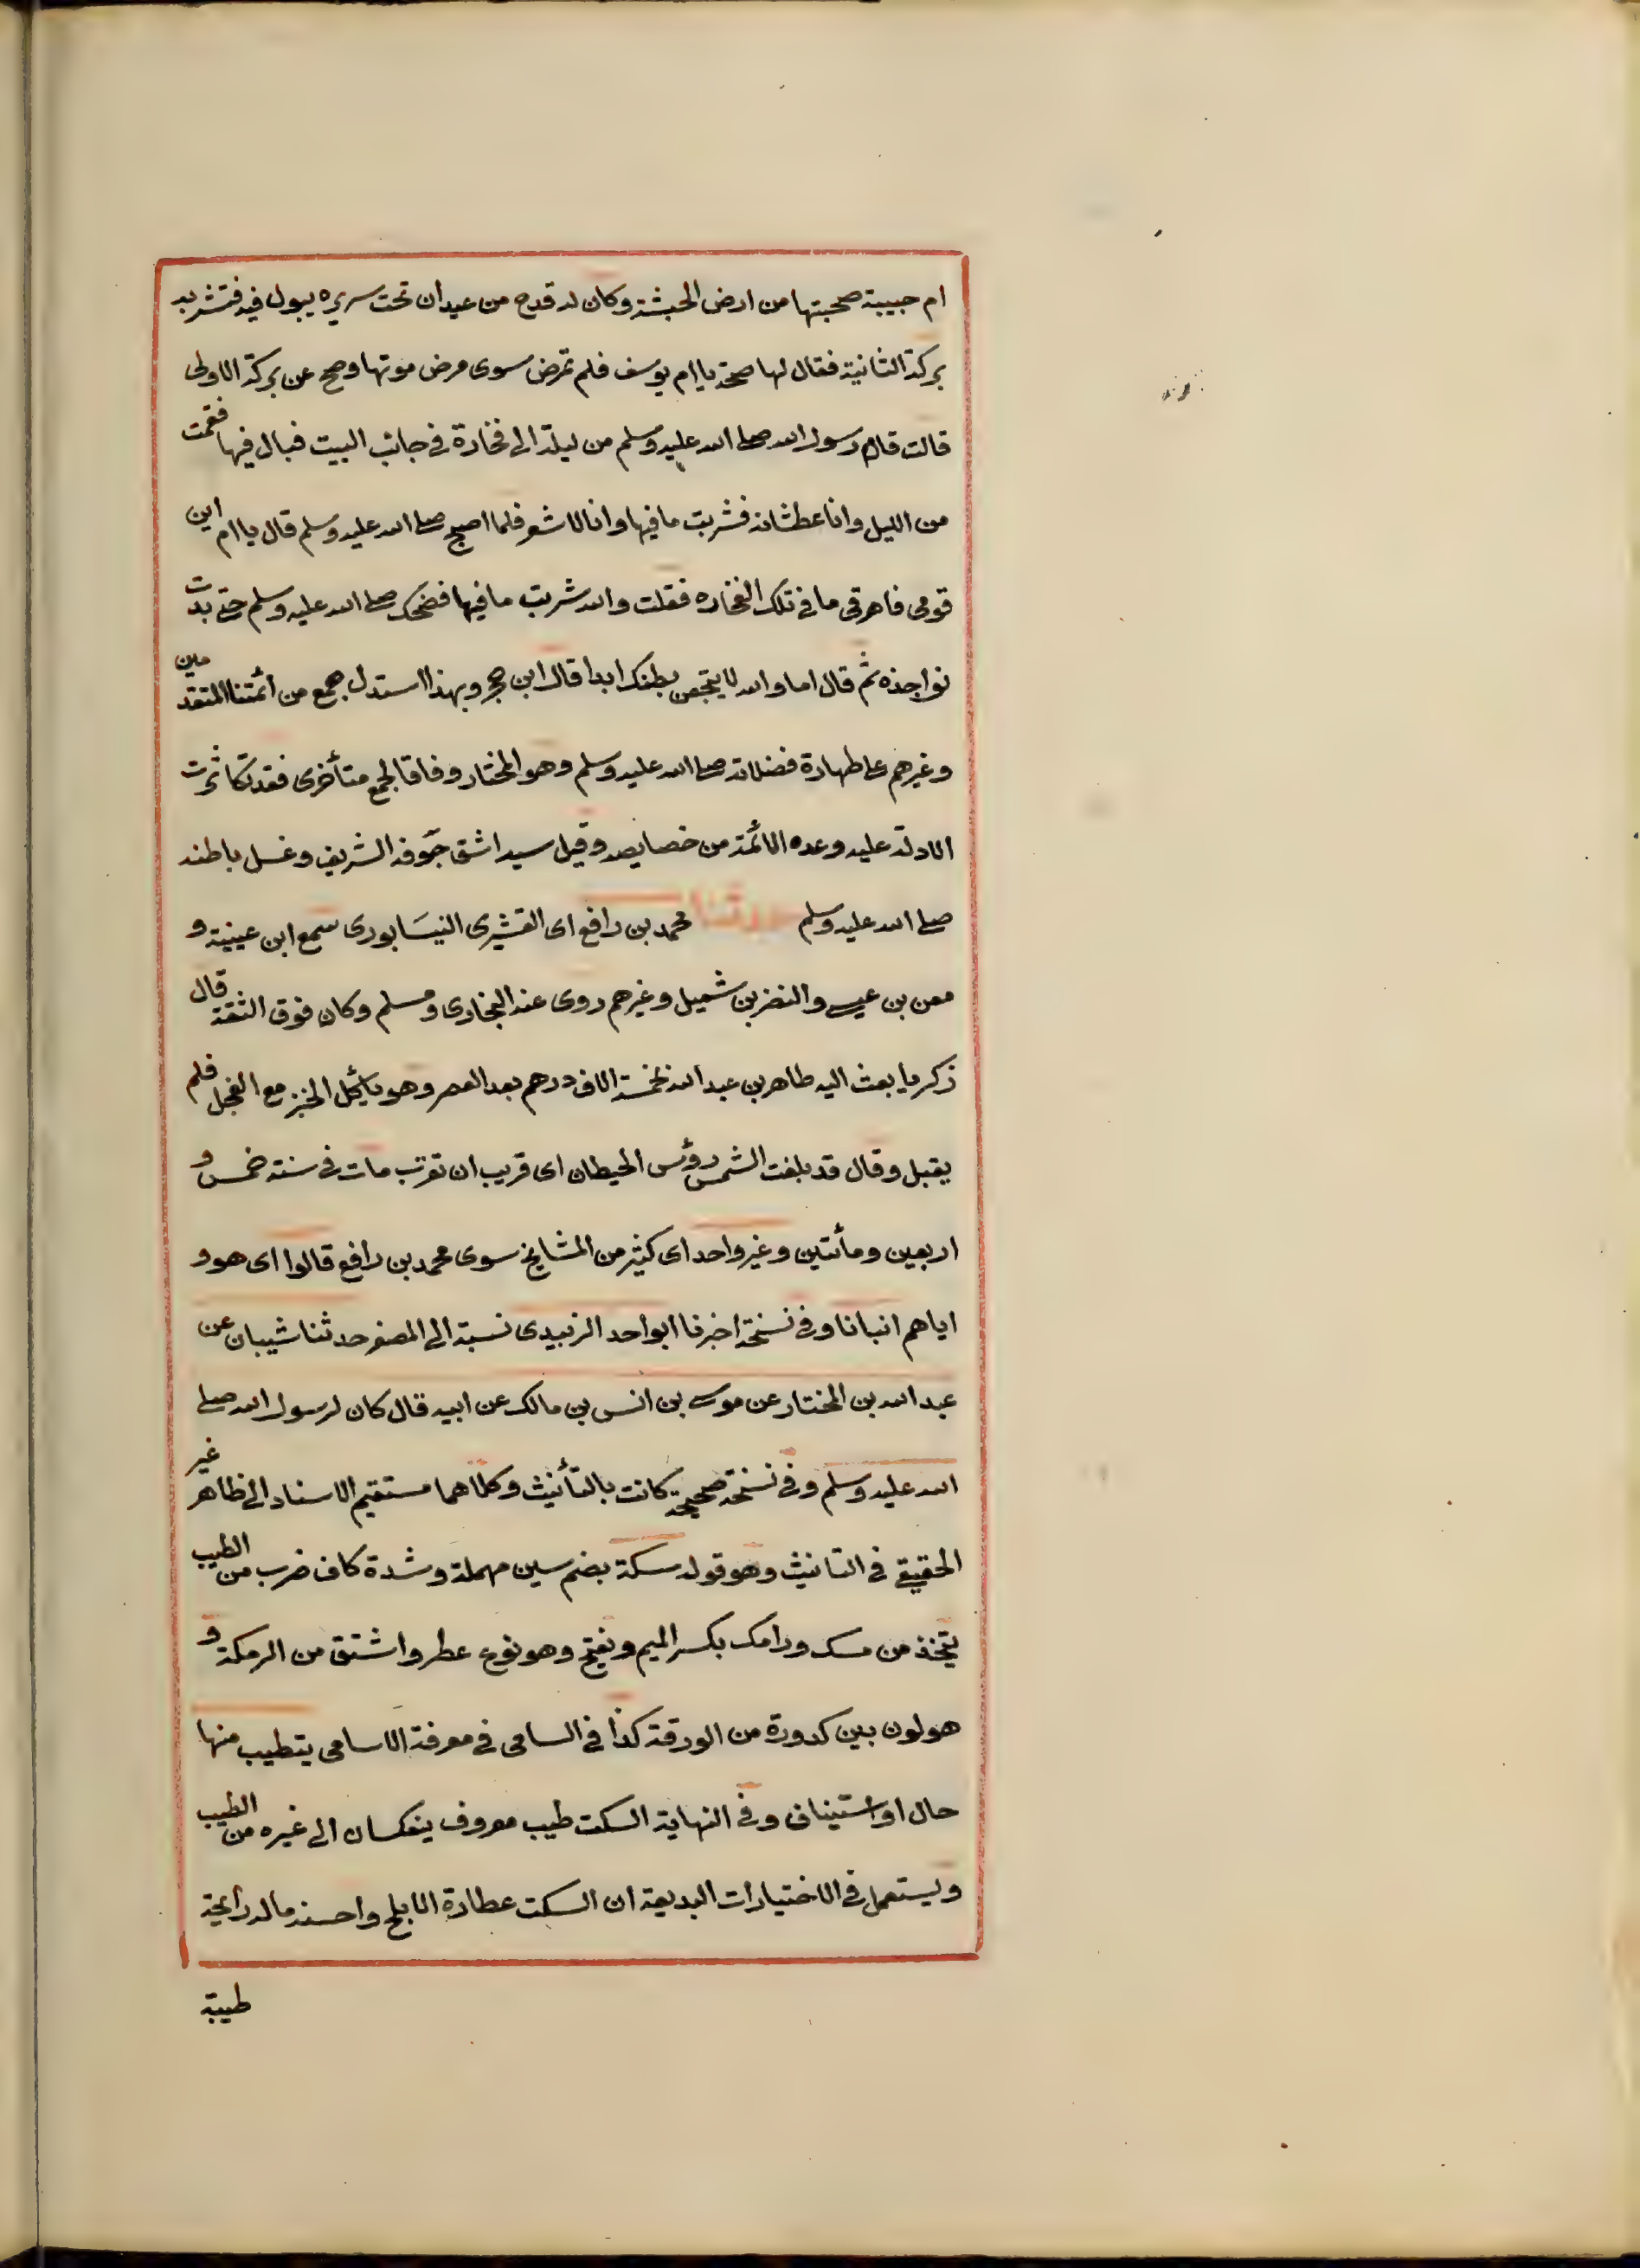 ام حبيبة صحبتها من ارض الحبشة وكان له قدح من عيدان تحت سريره يبول فيه فتشربه
بركة الثانية فقال لها صحة يا ام يوسف فلم تمرض سوى مرض موتها وصح عن بركة الاولى
قالت قام رسول الله صلى الله عليه وسلم من ليلة الى فخارة في جانب البيت فبال فيها فقمت
من الليل وانا عطشانة فشربت ما فيها وانا لا اشعر فلما اصبح صلى الله عليه وسلم قال يا ام ايمن
قومى فاهرقى ما في تلك الفخاره فقلت والله شربت ما فيها فضحك صلى الله عليه وسلم حتى بدت
نواجذه ثم قال اما والله لا يتجعن بطنك ابدا قال ابن حجر وبهذا استدل جمع من ائمتنا المتقدمين
وغيرهم على طهارة فضلاته صلى الله عليه وسلم وهو المختار وفاقا لجمع متأخرى فقد تكاثرت
الادلة عليه وعده الائمة من خصايصه وقيل سببه اشق جوفه الشريف وغسل باطنه
صلى الله عليه وسلم حدثنا محمد بن رافع اى القشيرى النيسابورى سمع ابن عيينة و
معن بن عيسى والنضر بن شميل وغيرهم روى عنه البخارى ومسلم وكان فوق الثقة قال
زكريا بعث اليه طاهر بن عبد الله بخمسة الاف درهم بعد العصر وهو يأكل الخبز مع الفجل فلم
يقبل وقال قد بلغت الشمس رؤس الحيطان اى قريب ان تغرب مات في سنة خمس و
اربعين ومأتين وغير واحد اى كثير من المشايخ سوى محمد بن رافع قالوا اى هو و
اياهم انبانا وفي نسخة اخبرنا ابو احمد الزبيدى نسبة الى المصغر حدثنا شيبان عن
عبد الله بن المختار عن موسى بن انس بن مالك عن ابيه قال كان لرسول الله صلى
الله عليه وسلم وفي نسخة صحيحة كانت بالتأنيث وكلاهما مستقيم الاسناد الى ظاهر غير
الحقيقي في التانيث وهو قوله سكة بضم سين مهملة وشدة كاف ضرب من الطيب
يتخذ من مسك ورامك بكسر الميم ونفتح وهو نوع عطر واشتق من الرمكة و
هو لون بين كدورة من الورقة كذا في السامى في معرفة الاسامى يتطيب منها
حال او استيناف وفي النهاية السكت طيب معروف ينعكسان الى غيره من الطيب
ويستعمل في الاختيارات البديعة ان السكت عطارة الابلج واحسنه ماله رائحة
طيبة